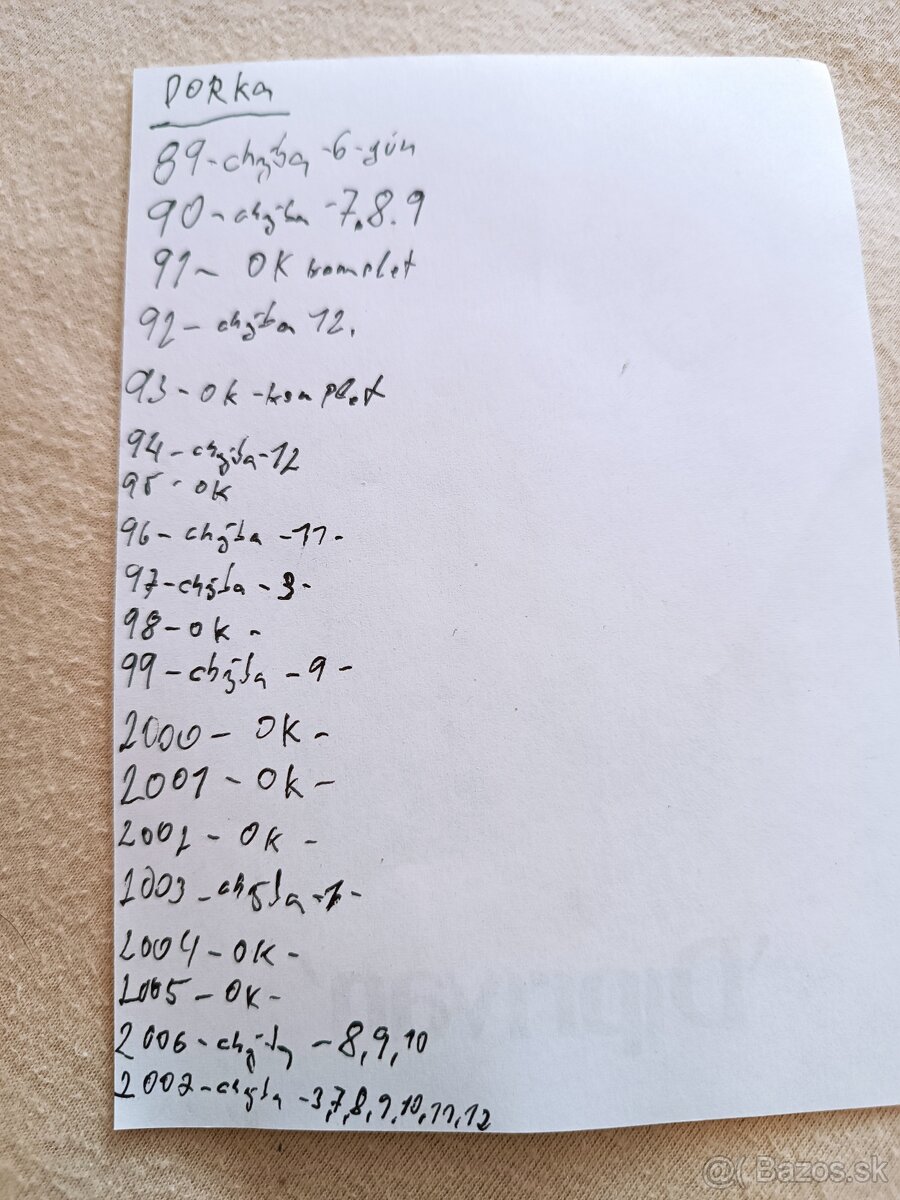 DORKA
89-chýba -6-jún
90-chýba -7.8.9
91- OK komplet
92-chýba 12.
93-OK-komplet
94-chýba-12
95-OK
96-chýba -11-
97-chýba -3-
98-OK -
99-chýba -9-
2000- OK-
2001- OK-
2002- OK -
2003-chýba-1-
2004-OK-
2005-OK-
2006-chýba -8,9,10
2007-chýba -3,7,8,9,10,11,12
Diprivan
@( Bazos.sk